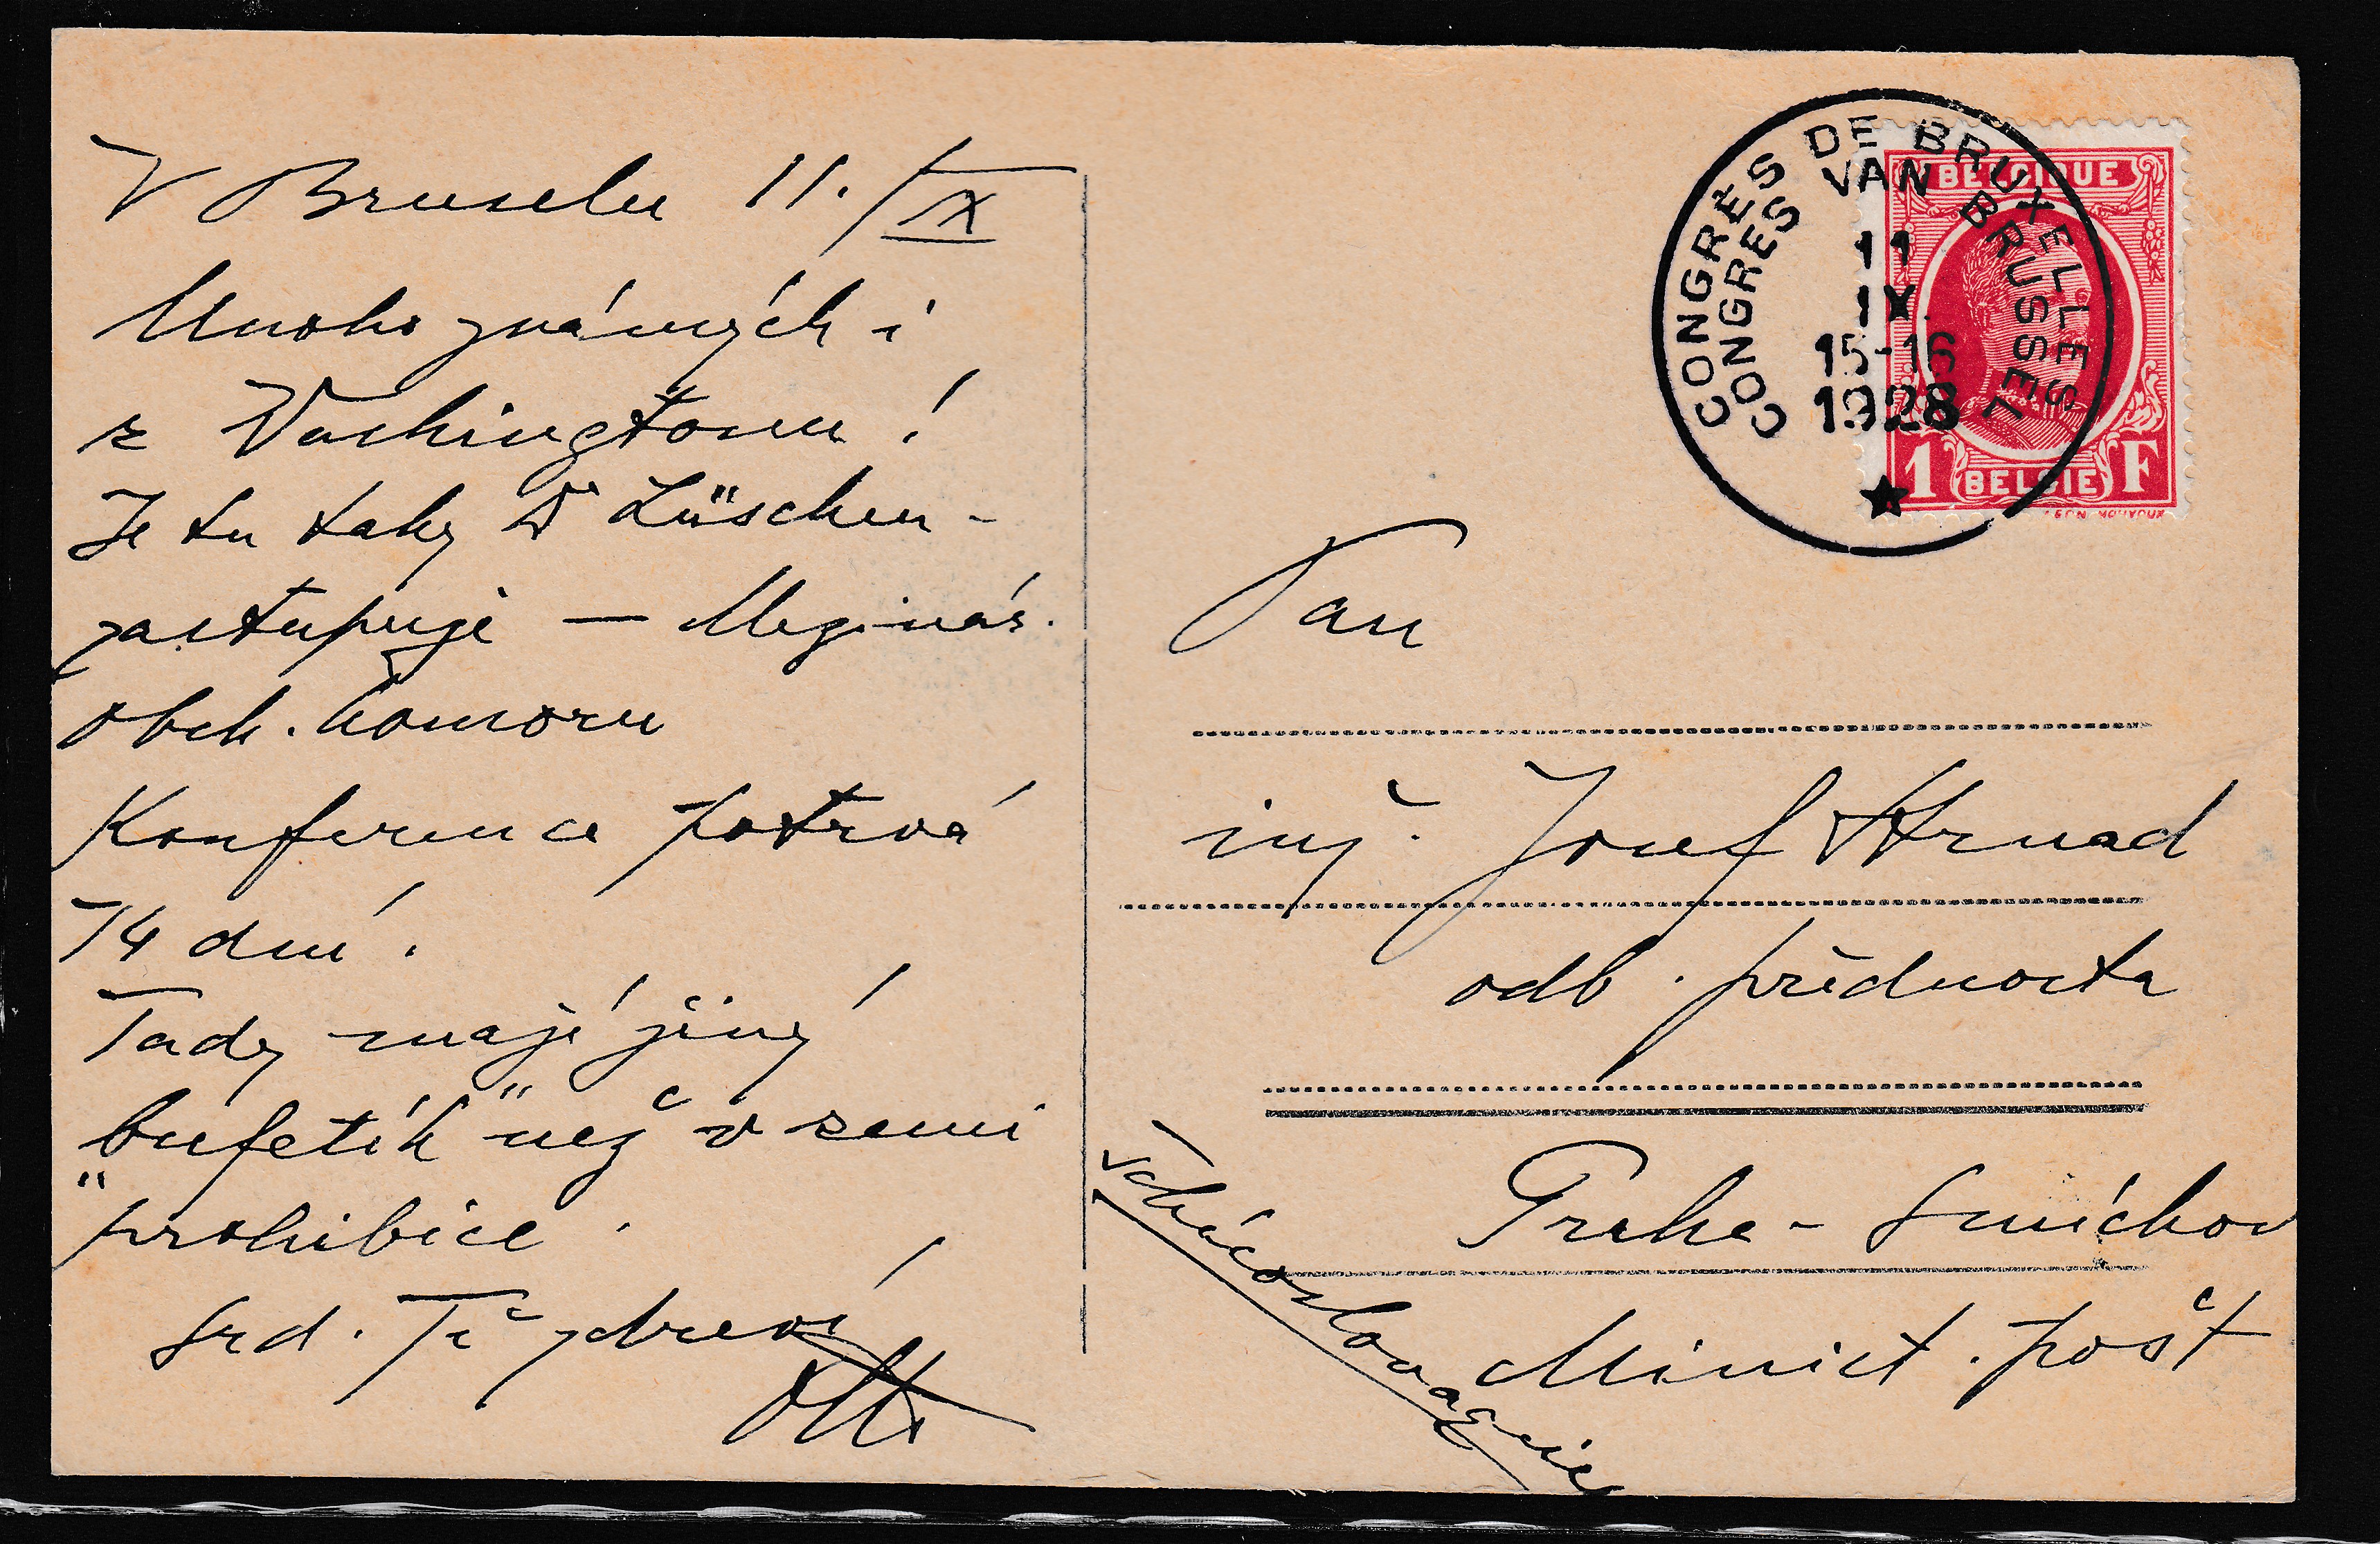 V Bruselu 11./IX
Mnoho známých i
z Vashingtonu!
Je tu taky Dr Lüschen –
zastupuje — Mezinár.
obch. komoru
Konference potrvá
14 dní.
Tady mají jiný
"bufetík" než v zemi
prohibice.
Srd. Tě zdraví
CONGRÈS DE BRUXELLES
CONGRES VAN BRUSSEL
11
IX
15-16
1928
BELGIQUE
1 BELGIE F
Pan
inž. Josef Strnad
odb. přednosta
Praha – Smíchov
Minist. pošt
Tchécoslovaquie